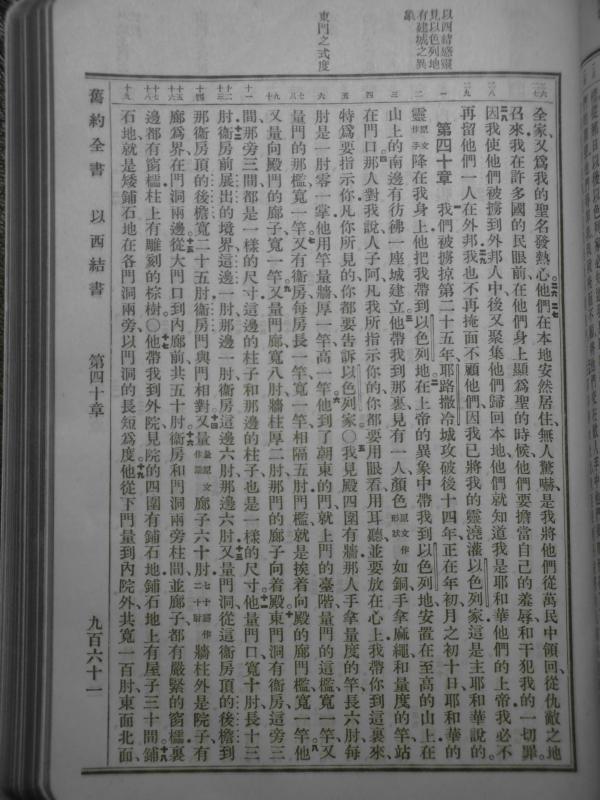 以西結感靈
見以色列地
有建城之異
象
東門之式度
全家又爲我的聖名發熱心他們在本地安然居住無人驚嚇是我將他們從萬民中領回從仇敵之地
召來我在許多國的民眼前在他們身上顯爲聖的時候他們要擔當自己的羞辱和干犯我的一切罪
因我使他們被擄到外邦人中後又聚集他們歸回本地他們就知道我是耶和華他們的上帝我必不
再留他們一人在外邦我也不再掩面不顧他們因我已將我的靈澆灌以色列家這是主耶和華說的
第四十章 我們被擄掠第二十五年耶路撒冷城攻破後十四年正在年初月之初十日耶和華的
靈原文作手降在我身上他把我帶到以色列地在上帝的異象中帶我到以色列地安置在至高的山上在
山上的南邊有彷彿一座城建立他帶我到那裏見有一人顏色原文作形狀如銅手拿麻繩和量度的竿站
在門口那人對我說人子阿凡我所指示你的你都要用眼看用耳聽並要放在心上我帶你到這裏來
特爲要指示你凡你所見的你都要告訴以色列家〇我見殿四圍有牆那人手拿量度的竿長六肘每
肘是一肘零一掌他用竿量牆厚一竿高一竿他到了朝東的門就上門的臺階量門的這檻寬一竿又
量門的那檻寬一竿又有衞房每房長一竿寬一竿相隔五肘門檻就是挨着向殿的廊門檻寬一竿他
又量向殿門的廊子寬一竿又量門廊寬八肘牆柱厚二肘那門的廊子向着殿東門洞有衞房這旁三
間那旁三間都是一樣的尺寸這邊的柱子和那邊的柱子也是一樣的尺寸他量門口寬十肘長十三
肘衞房前展出的境界這邊一肘那邊一肘衞房這邊六肘那邊六肘又量門洞從這衞房頂的後檐到
那衞房頂的後檐寬二十五肘衞房門與門相對又量廊子六十肘牆柱外是院子有
廊爲界在門洞兩邊從大門口到內廊前共五十肘衞房和門洞兩旁柱間並廊子都有嚴緊的窗櫺裏
邊都有窗櫺柱上有雕刻的棕樹〇他帶我到外院見院的四圍有鋪石地鋪石地上有屋子三十間鋪
石地就是矮鋪石地在各門洞兩旁以門洞的長短爲度他從下門量到內院外共寬一百肘東面北面
舊約全書 以西結書 第四十章 九百六十一